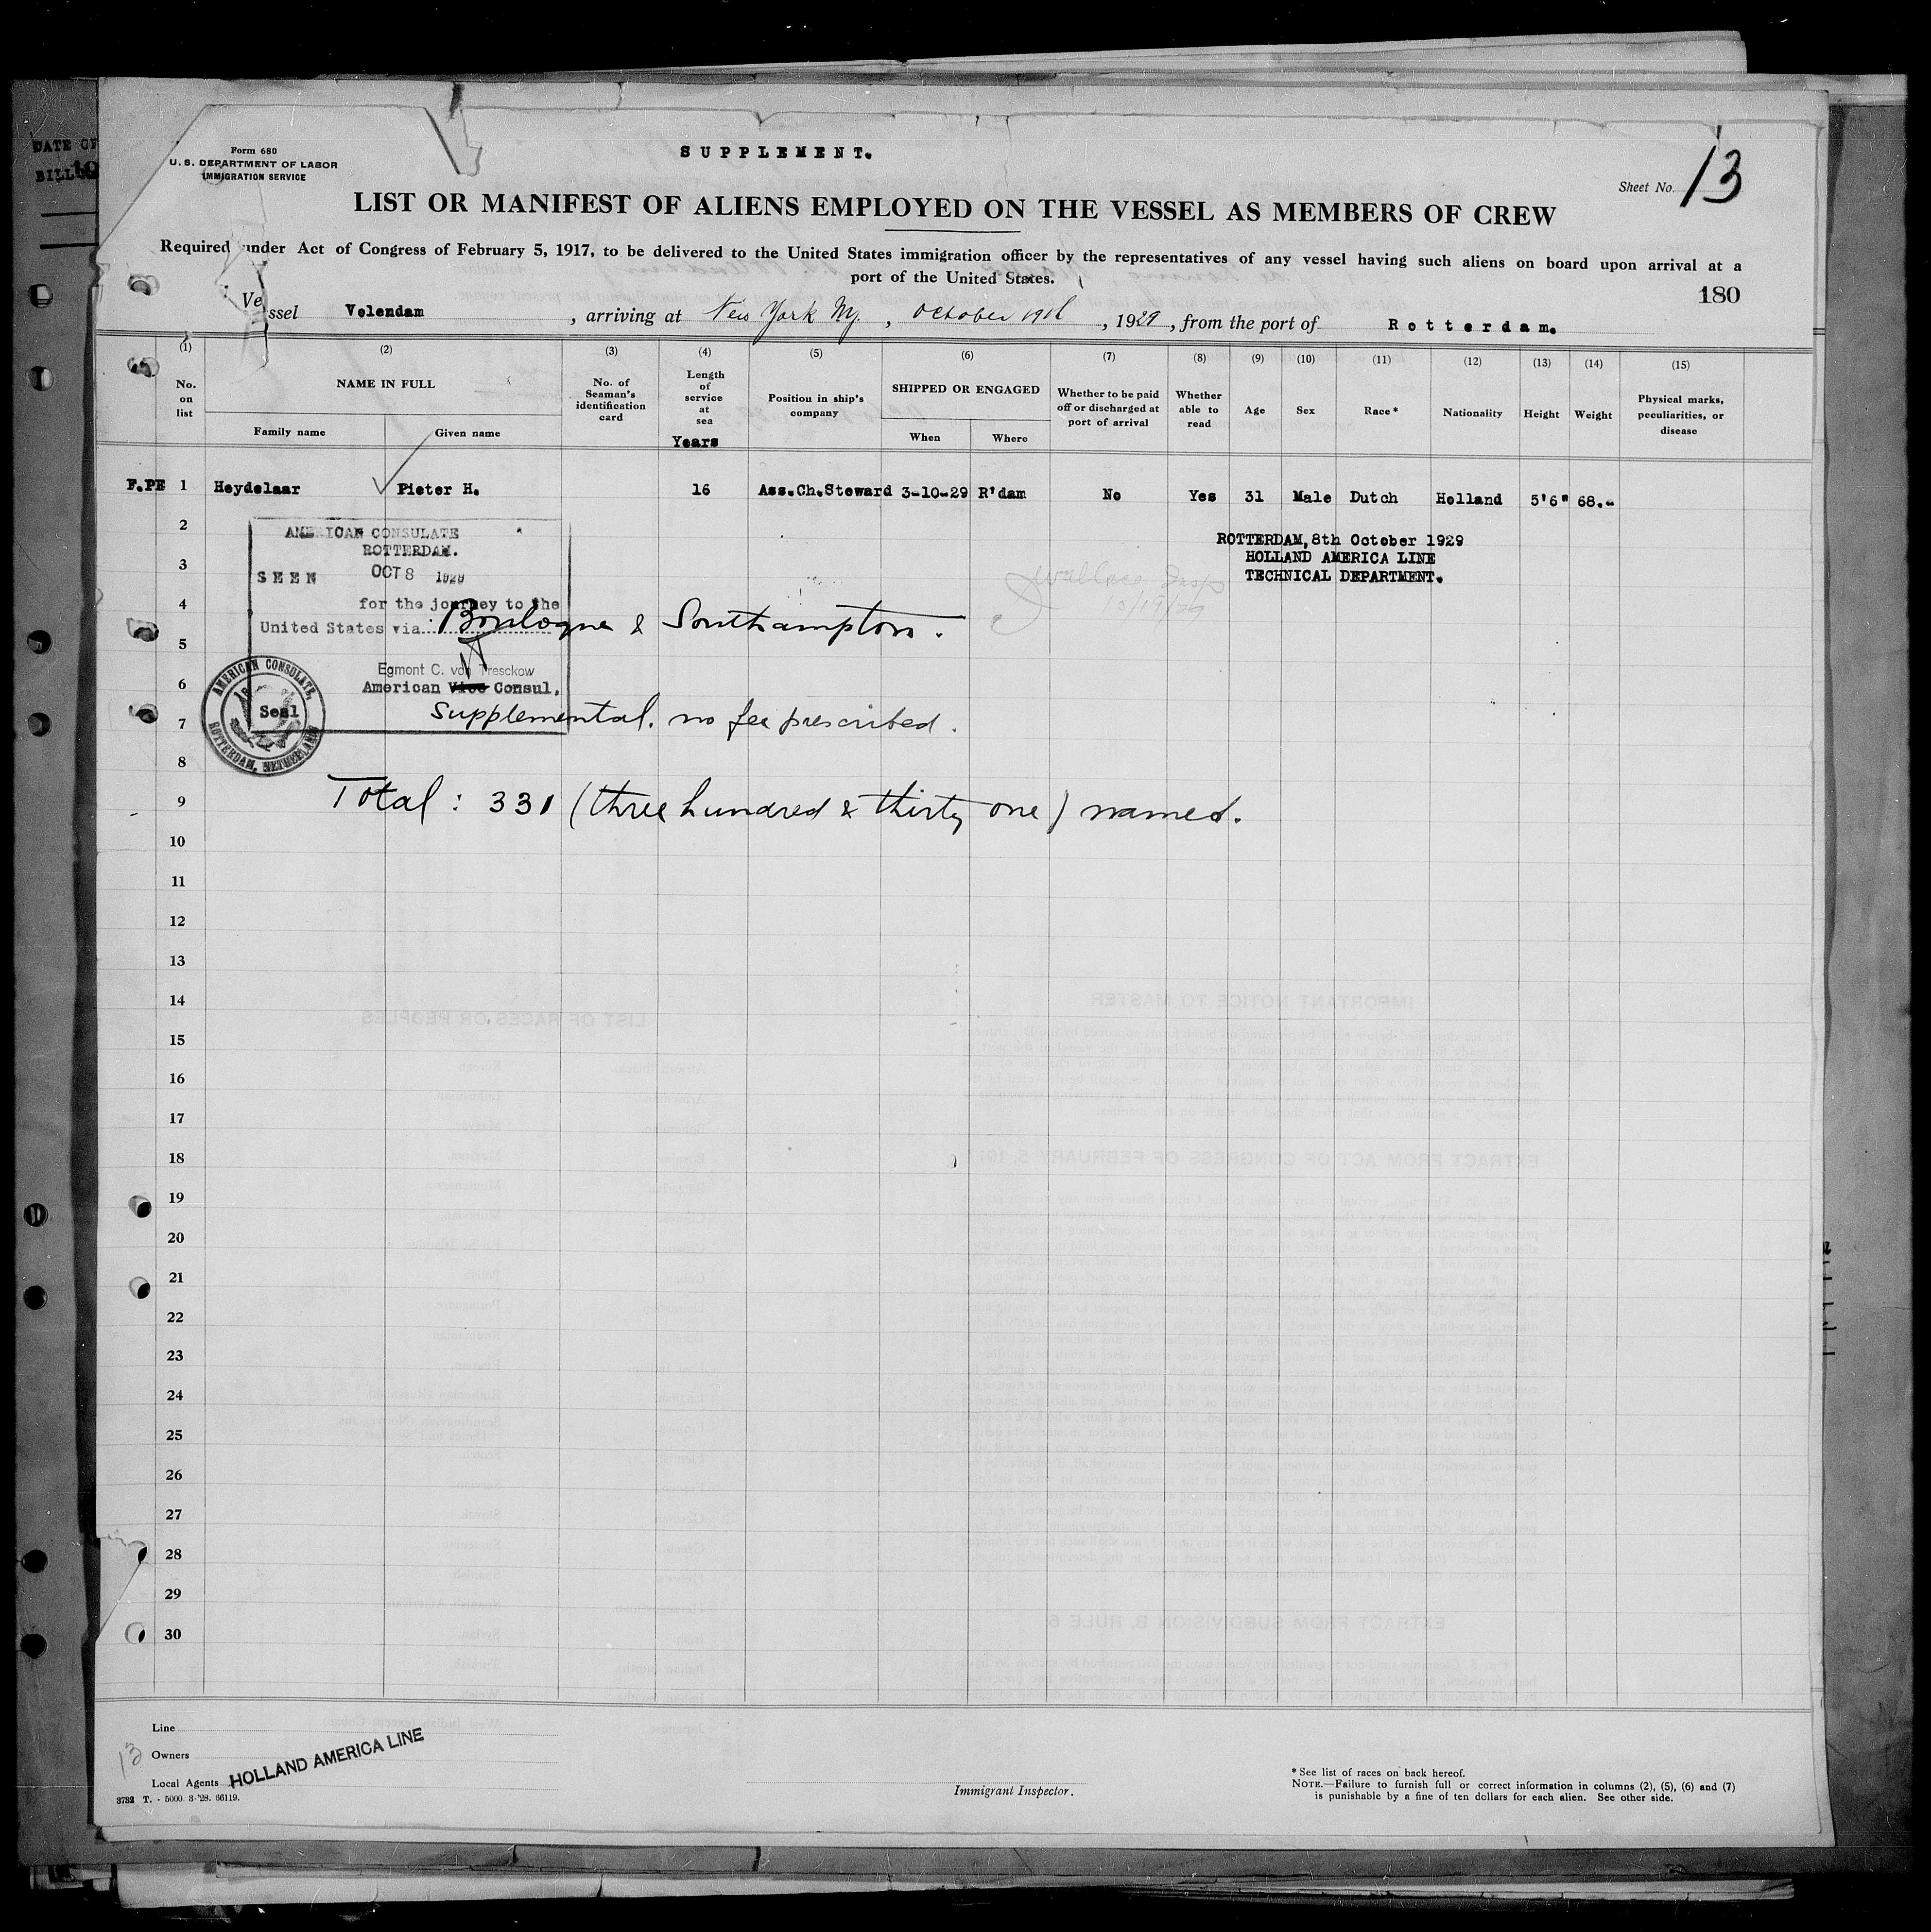 DATE OF
BILL
Form 680
U. S. DEPARTMENT OF LABOR
IMMIGRATION SERVICE
SUPPLEMENT.
Sheet No. 13
LIST OR MANIFEST OF ALIENS EMPLOYED ON THE VESSEL AS MEMBERS OF CREW
Required under Act of Congress of February 5, 1917, to be delivered to the United States immigration officer by the representatives of any vessel having such aliens on board upon arrival at a
port of the United States.
180
Vessel Volendam, arriving at New York Ny., October 19th, 1929, from the port of Rotterdam.
(1) (2) (3) (4) (5) (6) (7) (8) (9) (10) (11) (12) (13) (14) (15)
No. on list NAME IN FULL No. of Seaman's identification card Length of service at sea Position in ship's company SHIPPED OR ENGAGED Whether to be paid off or discharged at port of arrival Whether able to read Age Sex Race* Nationality Height Weight Physical marks, peculiarities, or disease
Family name Given name Years When Where
F.PE 1 Heydelaar Pieter H. 16 Ass.Ch.Steward 3-10-29 R'dam No Yes 31 Male Dutch Holland 5'6" 68.-
2
3
4
5
6
7
8
9
10
11
12
13
14
15
16
17
18
19
20
21
22
23
24
25
26
27
28
29
30
AMERICAN CONSULATE
ROTTERDAM.
SEEN OCT 8 1929
for the journey to the
United States via Boulogne & Southampton.
Egmont C. von Tresckow
American Vice Consul.
Supplemental. no fee prescribed.
AMERICAN CONSULATE,
Seal
ROTTERDAM, NETHERLANDS
ROTTERDAM, 8th October 1929
HOLLAND AMERICA LINE
TECHNICAL DEPARTMENT.
Wallace
10/19/29
Total : 331 (three hundred & thirty one) names.
Line
13
Owners
Local Agents
HOLLAND AMERICA LINE
3782 T. - 5000. 3-'28. 66119.
Immigrant Inspector.
* See list of races on back hereof.
NOTE.—Failure to furnish full or correct information in columns (2), (5), (6) and (7)
is punishable by a fine of ten dollars for each alien. See other side.